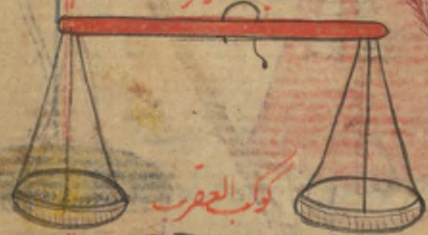 كوكب العقرب